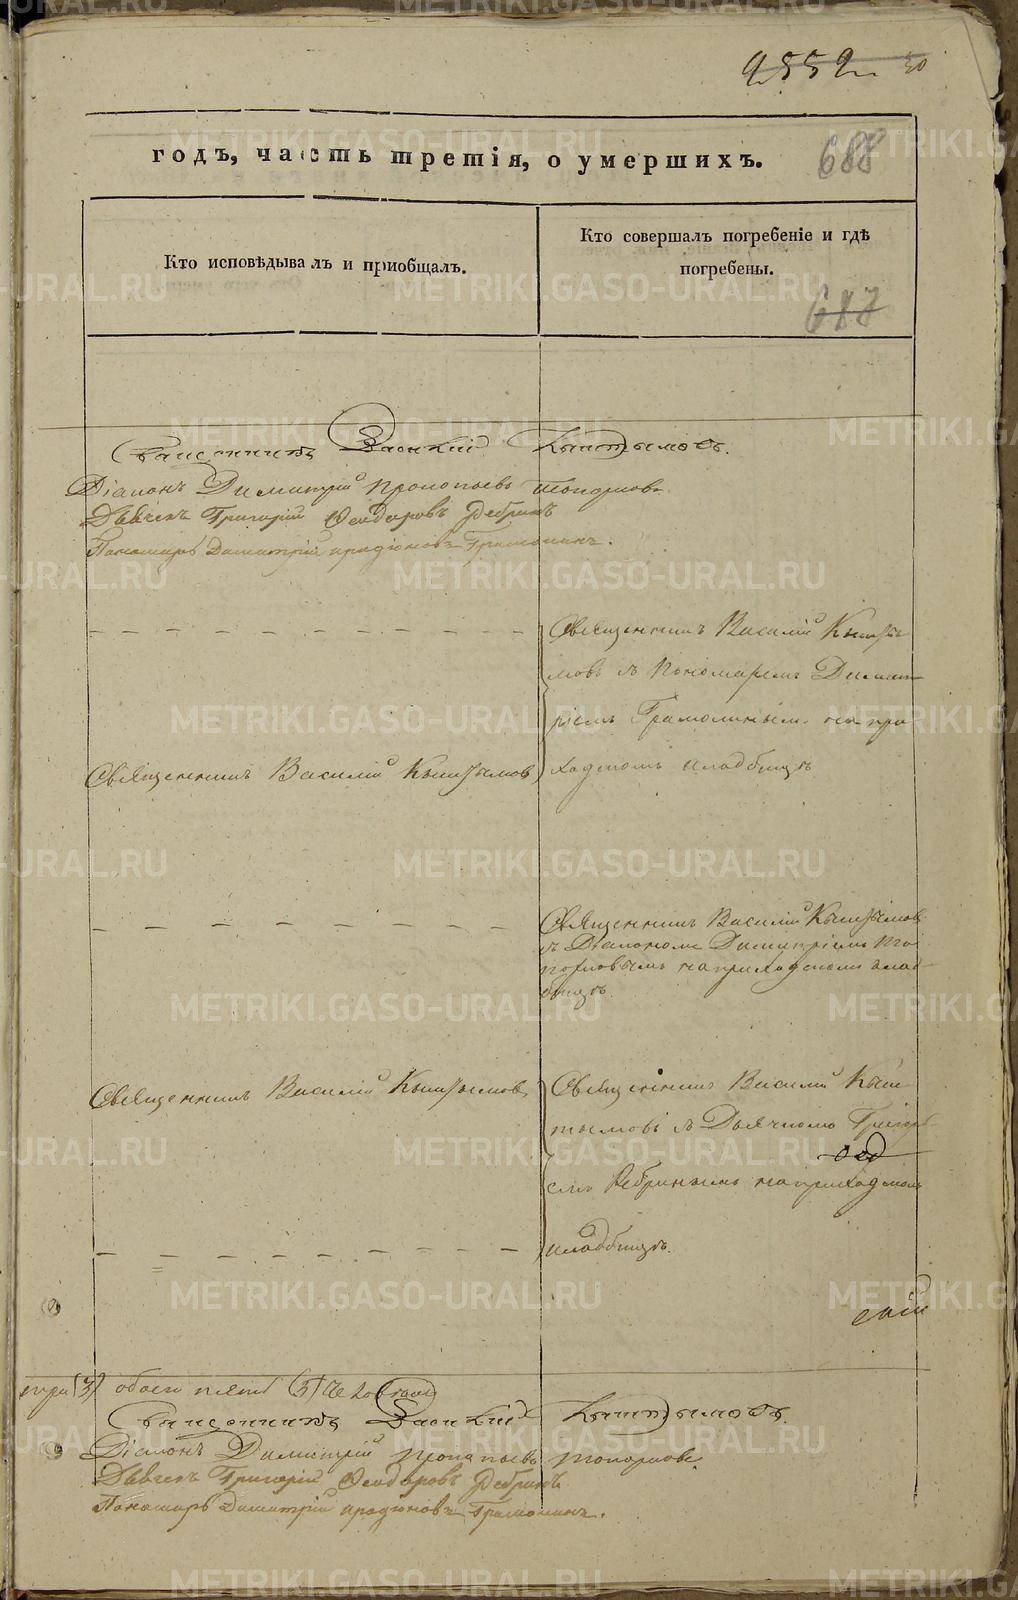 2552 50
годъ, часть третія, о умершихъ.
688
Кто исповѣдывалъ и пріобщалъ.
Кто совершалъ погребеніе и гдѣ
погребены.
687
Священникъ Василій Кыштымовъ.
Діаконъ Димитрій Прокопьевъ Топорковъ
Дьячекъ Григорій Ѳеодоровъ Ребринъ
Пономарь Димитрій Грамолинъ.
Священникъ Василій Кышты-
мовъ съ Пономаремъ Димит-
ріемъ Грамолинымъ на при-
ходскомъ кладбищѣ
Священникъ Василій Кыштымовъ
Священникъ Василій Кыштымовъ
съ Діакономъ Димитріемъ То-
порковымъ на приходскомъ клад-
бищѣ.
Священникъ Василій Кыштымовъ
Священникъ Василій Кыш-
тымовъ съ Дьячкомъ Григорі-
емъ Ребринымъ на приходскомъ
кладбищѣ.
три (3) обоего пять (5)
Священникъ Василій Кыштымовъ.
Діаконъ Димитрій Прокопьевъ Топорковъ.
Дьячекъ Григорій Ѳеодоровъ Ребринъ
Пономарь Димитрій Грамолинъ.
METRIKI.GASO-URAL.RU